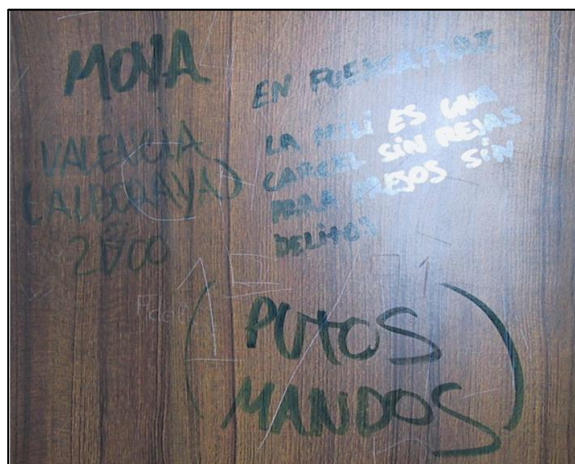 MOYA
VALENCIA
(ALBORAYA)
2000
EN FUENCATRAZ
LA MILI ES UNA
CARCEL SIN REJAS
PARA PRESOS SIN
DELITOS
(PUTOS
MANDOS)